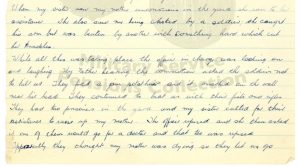 When my sister saw my mother unconscious in the yard she ran to her
assistance. She also saw me being chased by a soldier, she caught
his arm but was beaten by another with something hard which cut
her knuckles.
While all this was taking place the officer in charge was looking on
and laughing. My mother hearing the commotion asked the soldiers not
to hit us. They had a revolver and a rifle in the wall
near her head. They continued to beat us with their fists and rifles.
They had two prisoners in the yard and my sister called for their
assistance to move up my mother. The officer refused and she then asked
if one of them would go for a doctor and that too was refused.
Apparently they thought my mother was dying so they let us go